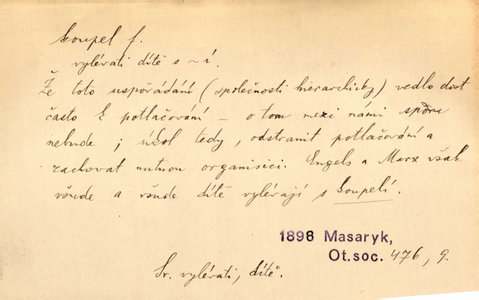 koupel f.
vylévati dítě s ~í.
Že toto uspořádání (společnosti hierarchicky) vedlo dost
často k potlačování – o tom mezi námi sporu
nebude ; úkol tedy, odstranit potlačování a
zachovat nutnou organisici. Engels a Marx však
všude a všude dítě vylévají s koupelí.
1898 Masaryk,
Ot.soc. 476, 9.
Sr. vylévati, dítě.